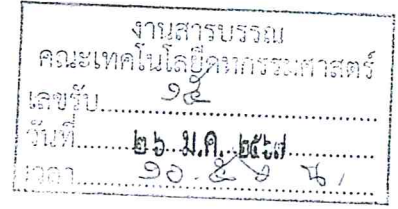 งานสารบรรณ
คณะเทคโนโลยีคหกรรมศาสตร์
เลขรับ.....๑๕.....
วันที่.....๒๖ ม.ค. ๒๕๖๗.....
เวลา.....๑๐.๕๖ น.